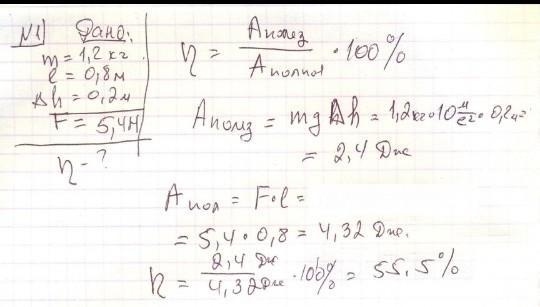 №1 Дано:
m = 1,2 кг
l = 0,8 м
Δh = 0,2 м
F = 5,4 Н
η - ?
η = Aполез / Aполной · 100%
Aполез = mgΔh = 1,2 кг · 10 м/с² · 0,2 м =
= 2,4 Дж
Aпол = F·l =
= 5,4 · 0,8 = 4,32 Дж.
η = 2,4 Дж / 4,32 Дж · 100% = 55.5%